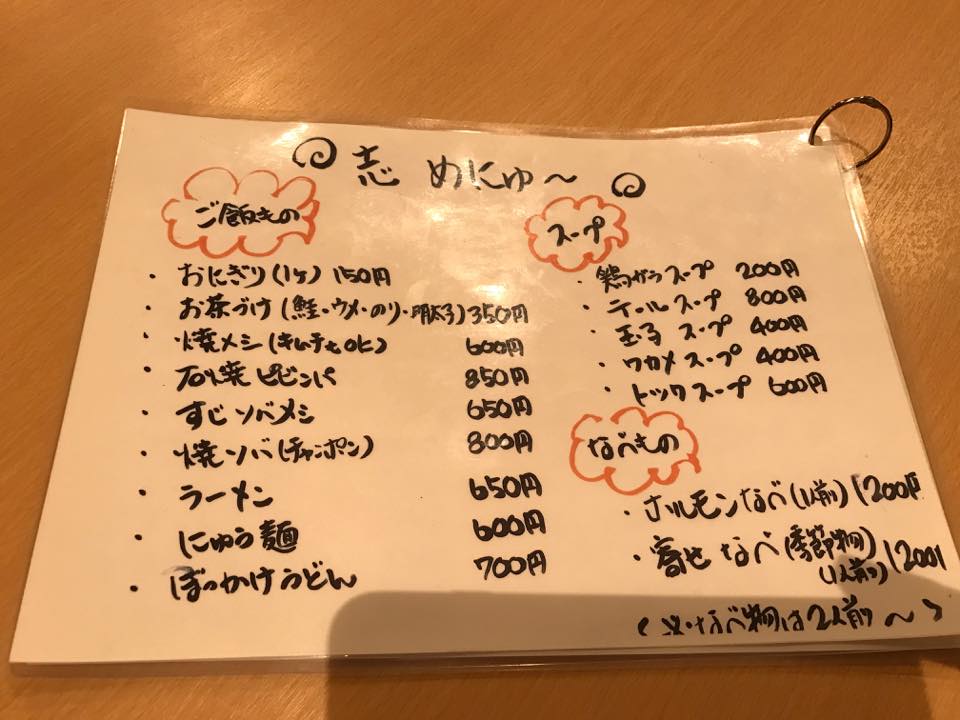 志 めにゅ～
ご飯もの
・おにぎり(1ヶ) 150円
・お茶づけ(鮭・ウメ・のり・明太子) 350円
・焼メシ(キムチもOK) 600円
・石焼ビビンパ 850円
・すじソバメシ 650円
・焼ソバ(チャンポン) 800円
・ラーメン 650円
・にゅう麺 600円
・ぼっかけうどん 700円
スープ
・鶏ガラスープ 200円
・テールスープ 800円
・玉子スープ 400円
・ワカメスープ 400円
・トックスープ 600円
なべもの
・ホルモンなべ(1人前) 1200円
・寄せなべ(季節物)
(1人前) 1200
(※・なべ物は2人前～)